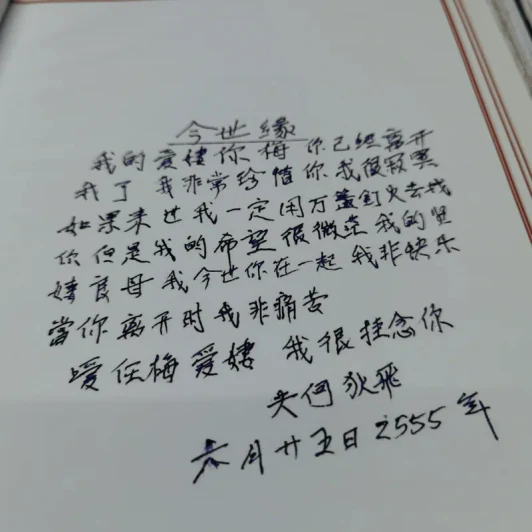 今世缘
我的爱妻你梅你已经离开
我了我非常珍惜你我很寂寞
如果来过我一定用万盏灯火去找
你但是我的希望很微茫我的贤
妻良母我今世你在一起我非快乐
當你离开时我非痛苦
爱任梅爱妻 我很挂念你
夫何狄飛
六月廿五日2555年